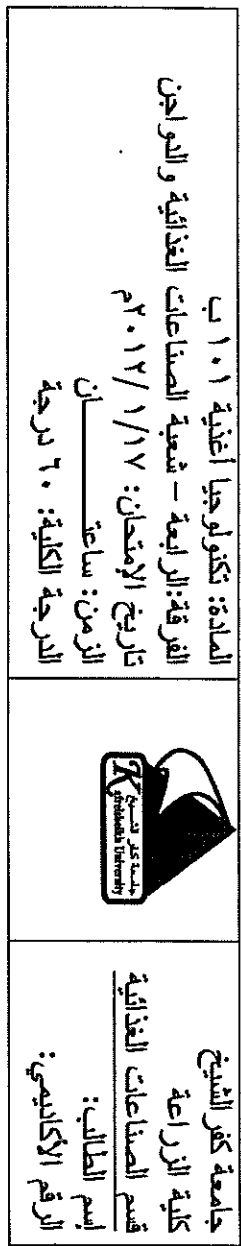 جامعة كفر الشيخ
كلية الزراعة
قسم الصناعات الغذائية
إسم الطالب:
الرقم الأكاديمي:
جامعة كفر الشيخ
Kafrelsheikh University
المادة: تكنولوجيا أغذية ١٠١ ب
الفرقة:الرابعة – شعبة الصناعات الغذائية والدواجن
تاريخ الإمتحان: ٢٠١٢/١/١٧م
الزمن: ساعتـــــــان
الدرجة الكلية: ٦٠ درجة